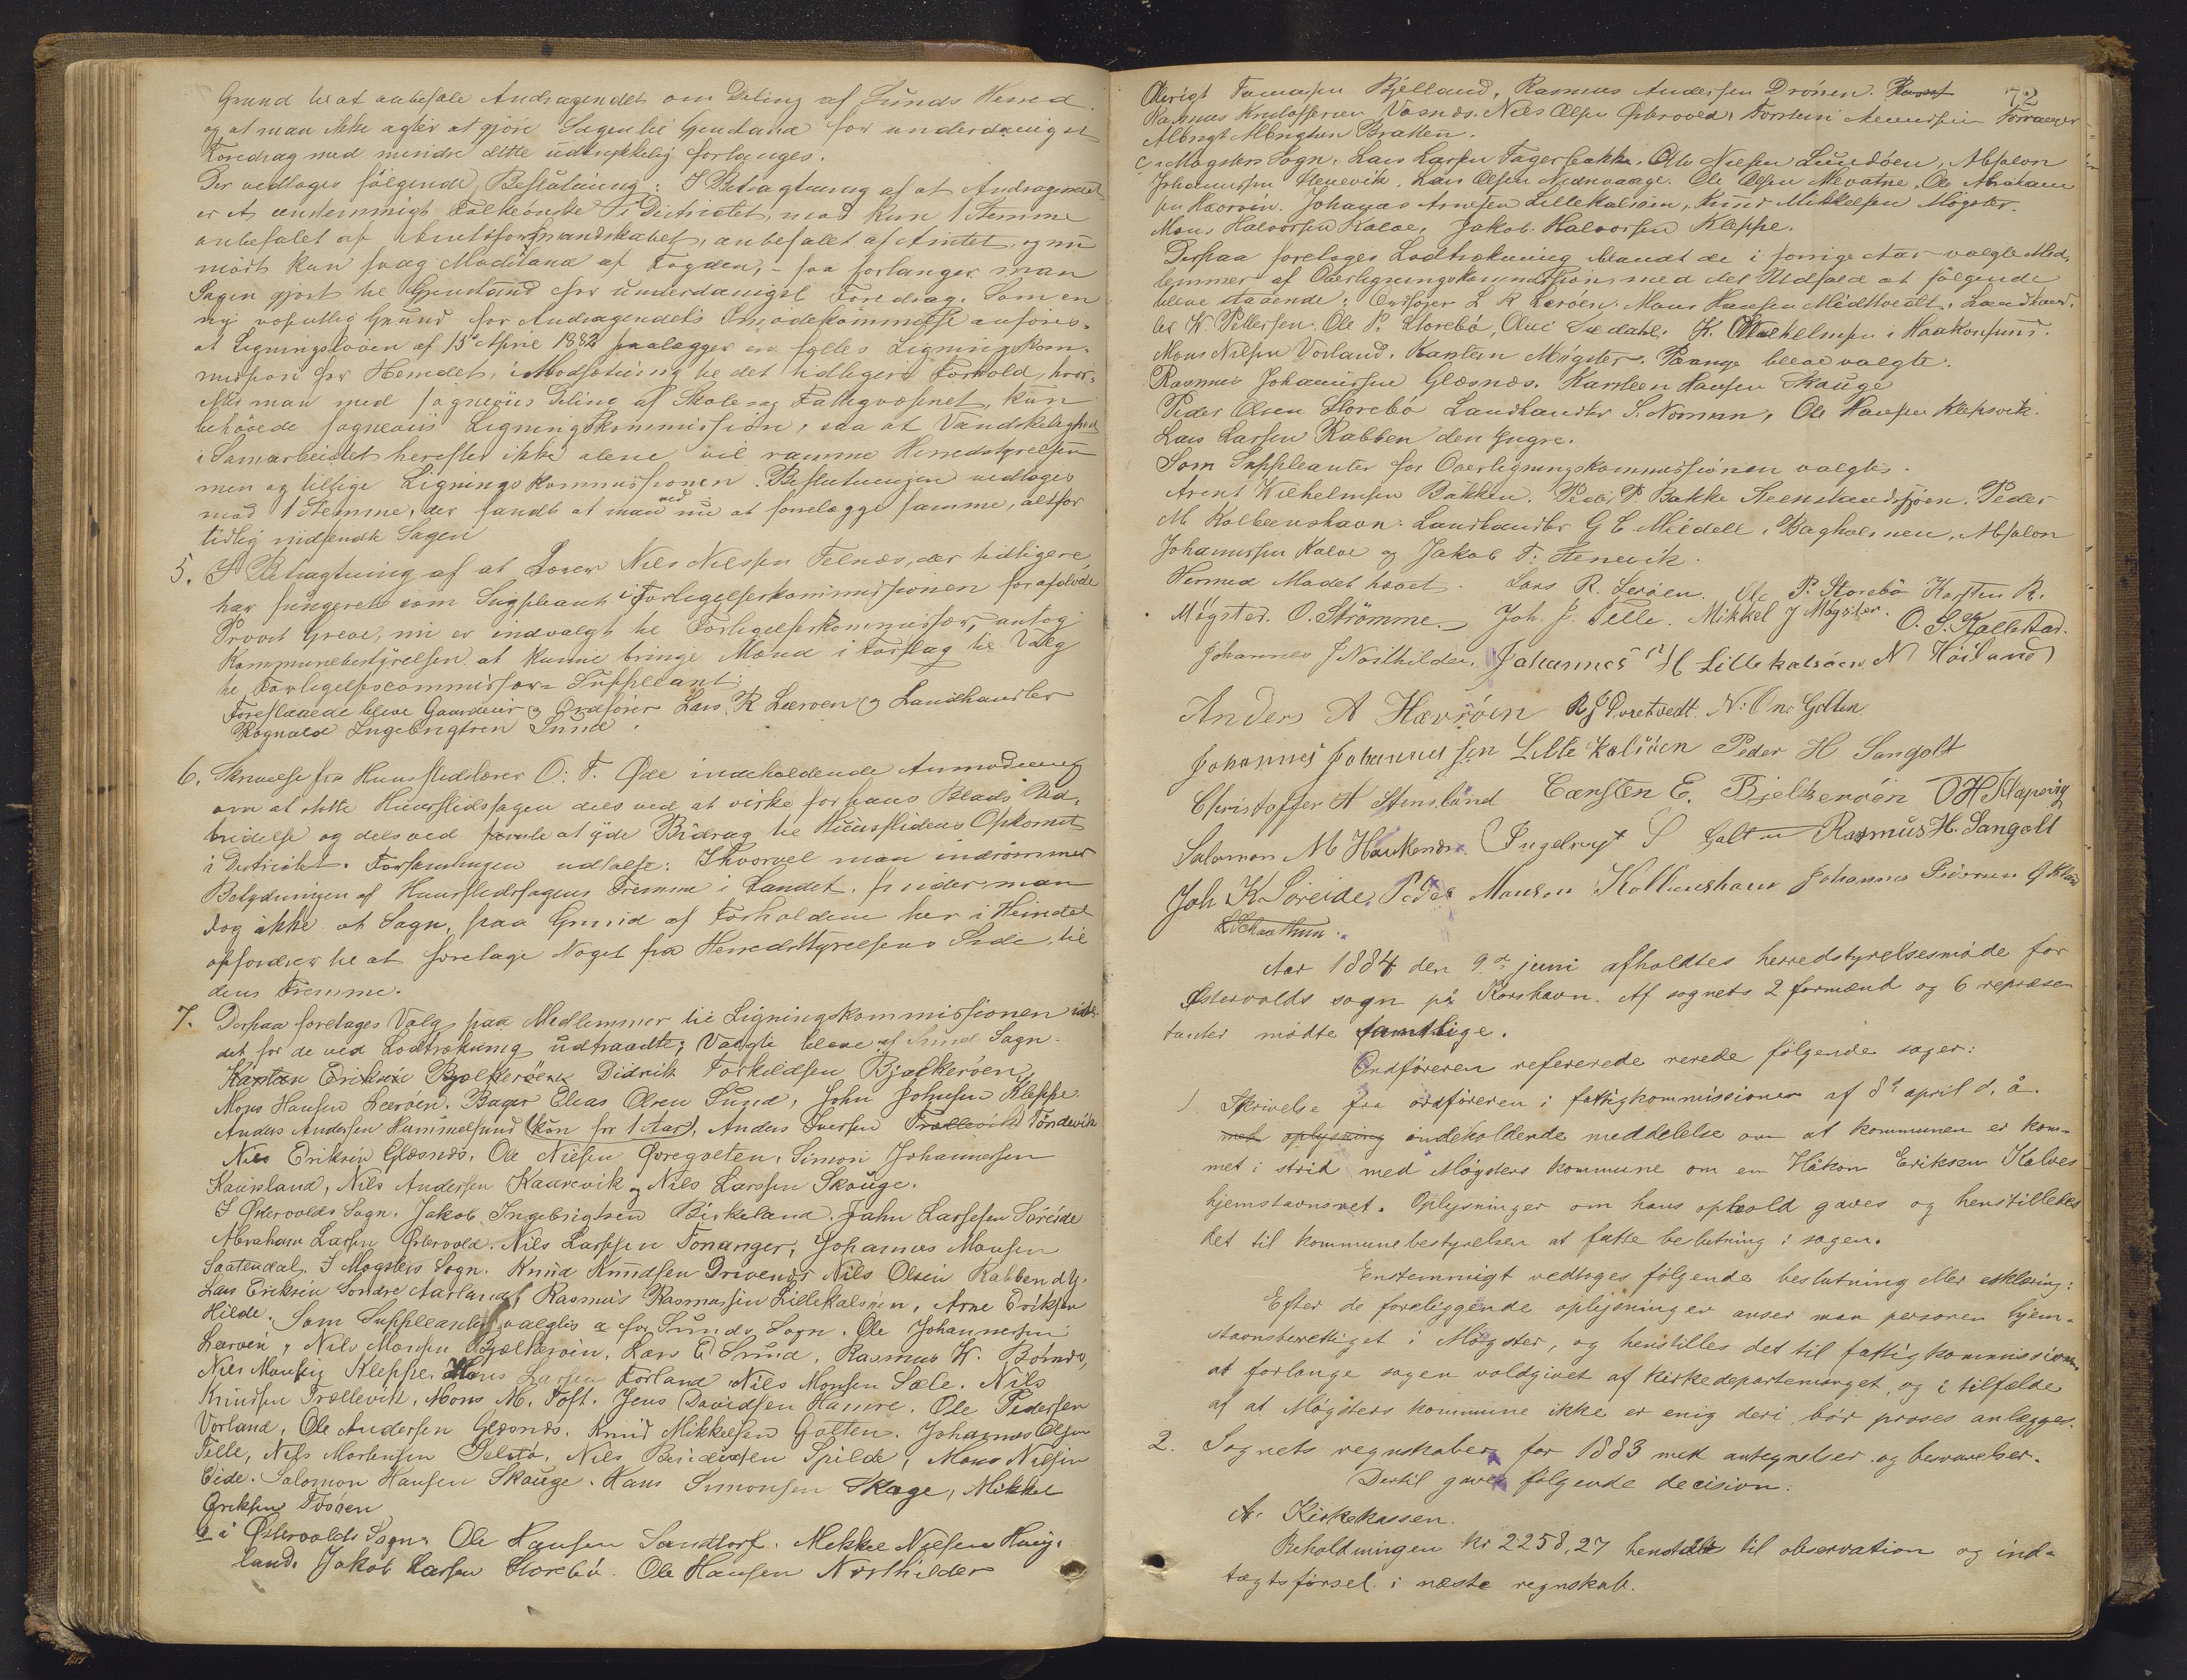 Grund til at anbefale Andragendet om Deling af Sunds Herred
og at man ikke agter at gjöre Sagen til Gjenstand for underdanigst
Foredrag med mindre dette udtrykkelig forlanges.
Der vedtoges fölgende Beslutning: I Betragtning af at Andragendet
er et eenstemmigt Folkeönske i Districtet, mod kun 1 Stemme
anbefalet af Amtsformandskabet, anbefalet af Amtet, og nu
mödt kun svag Modstand af Fogden, - saa forlanger man
Sagen gjort til Gjenstand for underdanigst Foredrag. Som en
ny væsentlig Grund for Andragendets Imödekommelse anföres,
at Ligningsloven af 15de April 1882 paalægger en fælles Ligningskom-
mission for Herredet, i Modsætning til det tidligere Forhold, hvor-
efter man med sogneviis Deling af Skole- og Fattigvæsenet, kun
behövede sogneviis Ligningskommission, saa at Vanskelighed
i Samarbeidet herefter ikke alene vil ramme Herredstyrelsen
men og tillige Ligningskommissionen. Beslutningen vedtoges
mod 1 Stemme, der fandt at man ved nu at forelægge samme, altfor
tidlig indsendte Sagen
5. I Betragtning af at Lærer Nils Nilssen Telnæs, der tidligere
har fungeret som Suppleant i Forligelseskommissionen for afdöde
Provst Greve, nu er indvalgt til Forligelseskommissær, antog
Kommunebestyrelsen at kunne bringe Mænd i Forslag til Valg
til Forligelsescommissær-Suppleant;
Foreslaaede bleve Gaardeier og Ordförer Lars R Leeroen og Landhandler
Rognald Ingebrigtsen Sund.
6. Skrivelse fra Huusflidslærer O: T. Öde indeholdende Anmodning
om at stötte Huusflidssagen dels ved at virke for hans Blads Ud-
bredelse og dels ved at yde Bidrag til Huusflidens Opkomst
i Districtet. Forsamlingen udtalte: Ihvorvel man indrömmer
Betydningen af Huusflidssagens Fremme i Landet, finder man
dog ikke at Sagn, paa Grund af Forholdene her i Herredet
opfordrer til at foretage Noget fra Herredstyrelsens Side, til
dens Fremme.
7. Derpaa foretoges Valg paa Medlemmer til Ligningskommissionen iste-
det for de ved Lodtrækning udtraadte; Valgte bleve af Sund Sogn
Karsten Eriksen Bjelkeröen, Didrik Torkildsen Bjælkeröen,
Mons Hansen Leeröen, Bager Elias Olsen Sund, John Johnsen Kleppe
Anders Andersen Hummelsund (kun for 1 Aar), Anders Iversen Trællevik Töndevik
Nils Eriksen Glæsnæs, Ole Nielsen Övregolten, Simon Johannessen
Kausland, Nils Andersen Kaarevik og Nils Larssen Skouge.
I Östervolds Sogn. Jakob Ingebrigtsen Birkeland. Jahn Larsesen Söreide
Abraham Larsen Östervold. Nils Larssen Tonanger, Johannes Monsen
Saatendal. I Møgsters Sogn. Knud Knudsen Drivenes Nils Olsen Rabben d.y.
Lars Eriksen Sondre Aarland, Rasmus Rasmussen Lillekalsöen, Arne Eriksen
Hilde. Som Suppleanter valgtes a for Sunds Sogn. Ole Johannessen
Leeroen, Nils Monsen Bjælkeröen, Lars E Sund, Rasmus K. Börnes,
Nils Monsen Kleppe, Hans Larsen Forland Nils Monsen Sæle. Nils
Knudsen Trællevik, Mons M. Toft. Jens Davidsen Hamre. Ole Pedersen
Vorland, Ole Andersen Glesnæs. Knud Mikkelsen Golten. Johannes Olsen
Telle, Nils Mortensen Selstö, Nils Bendixsen Spilde, Mons Nilsen
Eide. Salomon Hansen Skouge. Hans Simonsen Skoge, Mikkel
Eriksen Tösöen
b i Östervolds Sogn. Ole Hansen Sandtorf. Mekkel Nielsen Haug-
land. Jakob Larsen Storebö. Ole Hansen Nordhilder
72
Rasmus Andersen Drönen.
Rasmus Kristoffersen Vasnæs. Nils Olsen Östervold, Torsten
Albrigt Albrigtsen Bratten.
c i Møgsters Sogn, Lars Larsen Fagerbakke. Ole Nielsen Lundöen, Absalon
Johannessen Stenevik, Lars Olsen Ole Olsen Mevatne, Ole Abraham-
sen Haavöen. Johannes Arnesen Lillekalsöen, Knud Mikkelsen Møgster.
Mons Halvorsen Kalve, Jakob Halvorsen Kleppe.
Derpaa foretoges Lodtrækning blandt de i forrige Aar valgte Med-
lemmer af Overligningskommissionen, med det Udfald at fölgende
bleve staaende: Ordförer L R Leroen. Mons Hansen Midttveit, Landhand-
ler K Pettersen. Ole P. Storebö, Oluf Sædahl, K. Wilhelmsen i Haakonsund.
Mons Nilsen Vorland, Karsten Møgster. Paany bleve valgte.
Rasmus Johannessen Glæsnæs. Karsteen Hansen Skouge
Peder Olsen Storebö Landhandler S. Norman, Ole Hansen Klepsvik.
Lars Larsen Rabben den yngre.
Som Suppleanter for Overligningskommissionen valgtes.
Arent Wilhelmsen Bakken. Peder P. Bakke Steenslandssjöen. Peder
M. Kolbeenshavn. Landhandler G E Mildell, Bagholmen, Absalon
Johannessen Kalve og Jakob T. Stenevik.
Hermed Mödet hævet. Lars R. Leröen. Ole P. Storebö Karsten R.
Møgster. O. Strömme. Joh. J. Telle. Mikkel J Møgster. O. S. Kallestad.
Johannes J Nordhilder. Johannes H Lillekalsöen N Höiland
Anders A Hævröen R J Tveitvedt. N: O n: Golten
Johannes Johannessen Lille Kalsöen Peder H Sangolt
Christoffer H Stensland Carsten E. Bjelkeröen O H Klepsvig
Salomon M Haukenæs. Ingebrigt S Golten Rasmus H. Sangolt
Joh K Söreide. Peder Monsen Kolbeenshavn Johannes Pedersen
Aar 1884 den 9de juni afholdtes herredstyrelsesmøde for
Østervolds sogn på Korshavn. Af sognets 2 formænd og 6 repræsen
tanter mödte samtlige.
Ordføreren refererede rerede følgende sager:
1 Skrivelse fra ordføreren i fattigkommissionen af 8de april d. å.
med oplysning indeholdende meddelelse om at kommunen er kom-
met i strid med Møgsters kommune om en Håkon Eriksen Kalves
hjemstavnsret. Oplysninger om hans ophold gaves og henstilledes
det til kommunebestyrelsen at fatte beslutning i sagen.
Enstemmigt vedtoges følgende beslutning eller erklæring:
Efter de foreliggende oplysninger anser man personen hjem-
stavnsberettiget i Møgster, og henstilles det til fattigkommissionen
at forlange sagen voldgivet af kirkedepartementet, og i tilfælde
af at Møgsters kommune ikke er enig deri bør proses anlægges.
2. Sognets regnskaber for 1883 med antegnelser og besvarelser.
Dertil gaves følgende decision:
A. Kirkekassen.
Beholdningen kr 2258,27 henstilles til observation og ind-
tægtsførsel i næste regnskab.